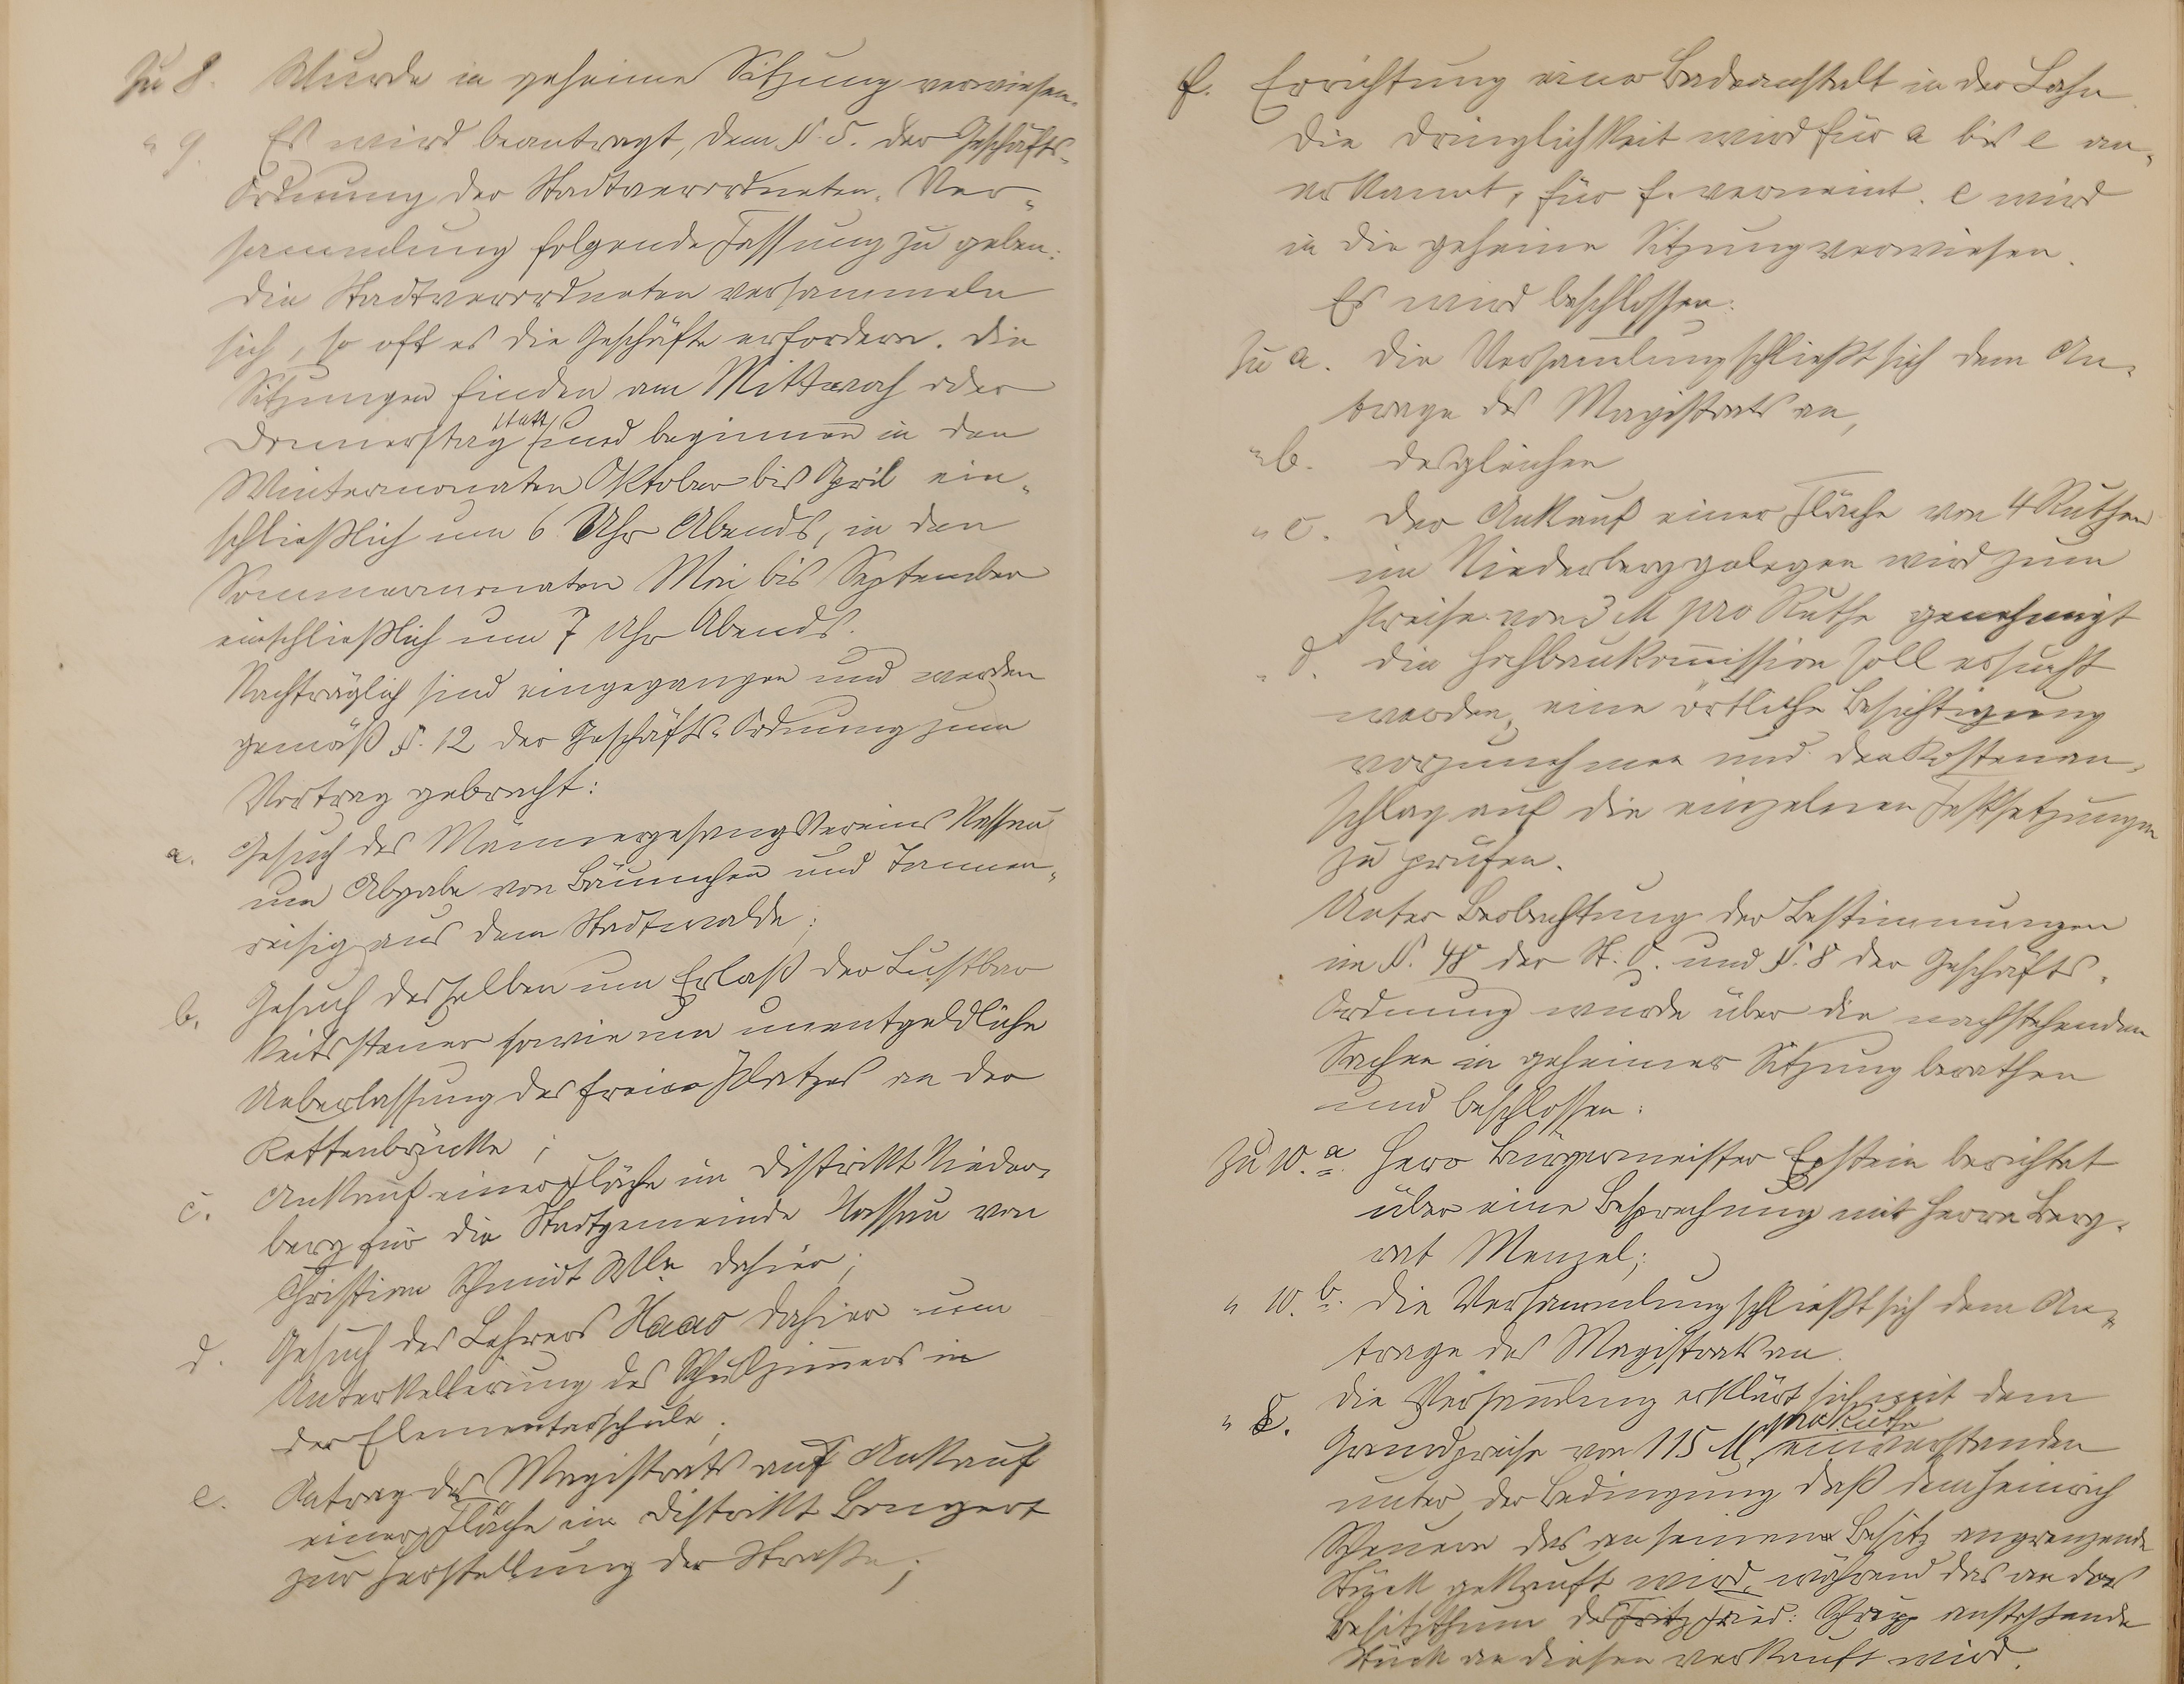 Zu 8. Wurde in geheime Sitzung verwiesen.
" 9. Es wird beantragt, dem §. 5. der Geschäfts-
Ordnung der Stadtverordneten-Ver-
sammlung folgende Fassung zu geben:
Die Stadtverordneten versammeln
sich, so oft es die Geschäfte erfordern. Die
Sitzungen finden am Mittwoch oder
Donnerstag statt und beginnen in den
Wintermonaten Oktober bis April ein-
schließlich um 6 Uhr Abends, in den
Sommermonaten Mai bis September
einschließlich um 7 Uhr Abends.
Nachträglich sind eingegangen und werden
gemäß §. 12 der Geschäfts-Ordnung zum
Vortrag gebracht:
a. Gesuch des Männergesangvereins Nassau
um Abgabe von Bäumchen und Tannen-
reisig aus dem Stadtwalde;
b. Gesuch desselben um Erlaß der Lustbar
keitssteuer sowie um unentgeldliche
Ueberlassung des freien Platzes an der
Kettenbrücke;
c. Ankauf einer Fläche im Distrikt Nieder-
berg für die Stadtgemeinde Nassau von
Christian Schmidt Wwe dahier;
d. Gesuch des Lehrers Haas dahier um
Unterkellerung des Schulzimmers in
der Elementarschule;
e. Antrag des Magistrats auf Ankauf
einer Fläche im Distrikt Bongert
zur Herstellung der Straße;
f. Errichtung einer Badeanstalt in der Lahn.
Die Dringlichkeit wird für a bis e an-
erkannt, für f. verneint. e wird
in die geheime Sitzung verwiesen.
Es wird beschlossen:
Zu a. Die Versammlung schließt sich dem An-
trage des Magistrats an,
" b. desgleichen
" c. Der Ankauf einer Fläche von 4 Ruthen
im Niederberg gelegen wird zum
Preise von 3 M pro Ruthe genehmigt
" d. Die Hochbaukommission soll ersucht
werden, eine örtliche Besichtigung
vorzunehmen und den Kostenan-
schlag auf die einzelnen Festsetzungen
zu prüfen.
Unter Beobachtung der Bestimmungen
im §. 48 der St. O. und §. 8 der Geschäfts-
Ordnung wurde über die nachstehenden
Sachen in geheimer Sitzung berathen
und beschlossen:
Zu 10. a. Herr Bürgermeister Epstein berichtet
über eine Besprechung mit Herrn Berg-
rat Menzel;
" 10. b. Die Versammlung schließt sich dem An-
trage des Magistrats an.
" 8. Die Versammlung erklärt sich mit dem
Grundpreise von 115 M pro Ruthe einverstanden
unter der Bedingung daß dem Heinrich
Scheuern das an seinem Besitz angrenzende
Stück gekauft wird, während das an das
Besitzthum des Fritz Fried: anstoßende
Stück an diesen verkauft wird.